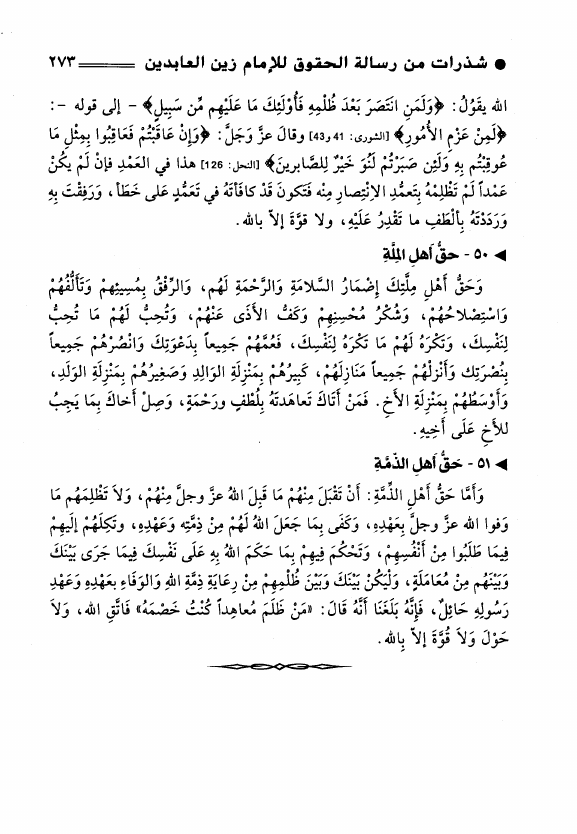 ● شذرات من رسالة الحقوق للإمام زين العابدين ٢٧٣
الله يقَولُ: ﴿وَلَمَنِ انْتَصَرَ بَعْدَ ظُلْمِهِ فَأُوْلَئِكَ مَا عَلَيْهِم مِّن سَبِيلٍ﴾ - إلى قوله -:
﴿لَمِنْ عَزْمِ الأُمُورِ﴾ [الشورى: 41 و43] وقالَ عزَّ وَجَلَّ: ﴿وَإِنْ عَاقَبْتُم فَعَاقِبُوا بِمِثْلِ مَا
عُوقِبْتُم بِهِ وَلَئِن صَبَرْتُم لَهُوَ خَيْرٌ لِلصَّابرينَ﴾ [النحل: 126] هذا في العَمْدِ فإنْ لَم يكُنْ
عَمْداً لَمْ تَظْلِمْهُ بِتَعمُّدِ الاِنْتِصارِ مِنْه فتَكونَ قَدْ كافَأتَهُ في تَعَمُّدٍ على خَطَأ، وَرَفِقْتَ بِهِ
وَرَدَدْتَهُ بِألْطَفِ ما تَقْدِرُ عَلَيْهِ، ولا قوَّةَ إلاّ بالله.
◄ ٥٠ - حقُّ أهلِ المِلَّةِ
وَحَقُّ أهْلِ مِلَّتِكَ إضْمَارُ السَّلامَةِ وَالرَّحْمَةِ لَهُم، وَالرِّفْقُ بِمُسيئِهِمْ وَتَألُّفُهُمْ
وَاسْتِصْلاحُهُمْ، وَشُكْرُ مُحْسِنِهِمْ وَكَفُّ الأذَى عَنْهُمْ، وَتُحِبُّ لَهُمْ مَا تُحِبُّ
لِنَفْسِكَ، وَتَكْرَهُ لَهُمْ مَا تَكْرَهُ لِنَفْسِكَ، فَعُمَّهُمْ جَمِيعاً بِدَعْوَتِكَ وَانْصُرْهُمْ جَميعاً
بِنُصْرَتِك وَأنْزِلْهُمْ جَميعاً مَنَازِلَهُمْ، كَبيرُهُمْ بِمَنْزِلَةِ الوالِدِ وَصَغيرُهُمْ بِمَنْزِلَةِ الوَلَدِ،
وَأوْسَطُهُمْ بِمَنْزِلَةِ الأخِ. فَمَنْ أتَاكَ تَعاهَدتَهُ بِلُطْفٍ ورَحْمَةٍ، وَصِلْ أخاكَ بِمَا يَجِبُ
للأخِ عَلَى أخِيهِ.
◄ ٥١ - حَقُّ أهلِ الذّمَّةِ
وَأمَّا حَقُّ أهْلِ الذِّمَّةِ: أنْ تَقْبَلَ مِنْهُمْ مَا قَبِلَ اللهُ عزَّ وجلَّ مِنْهُمْ، وَلاَ تَظْلِمَهُم مَا
وَفوا الله عزَّ وجلَّ بِعَهْدِهِ، وَكَفَى بِمَا جَعَلَ اللهُ لَهُمْ مِنْ ذِمَّتِه وَعَهْدِهِ، وتكِلَهُمْ إلَيهِمْ
فِيمَا طَلَبُوا مِنْ أنْفُسِهِمْ، وَتَحْكُمَ فِيهِمْ بِمَا حَكَمَ اللهُ بِهِ عَلَى نَفْسِكَ فِيمَا جَرَى بَيْنَكَ
وَبَيْنَهُم مِنْ مُعَامَلَةٍ، وَلْيَكُنْ بَيْنَكَ وَبَيْنَ ظُلْمِهِمْ مِنْ رِعَايَةِ ذِمَّةِ اللهِ وَالوَفَاءِ بعَهْدِهِ وعَهْدِ
رَسُولِهِ حَائِلٌ، فَإنَّهُ بَلَغَنَا أنَّهُ قَالَ: «مَنْ ظَلَمَ مُعاهِداً كُنْتُ خَصْمَهُ» فَاتَّقِ الله، وَلاَ
حَوْلَ وَلاَ قُوَّةَ إلاّ بِالله.